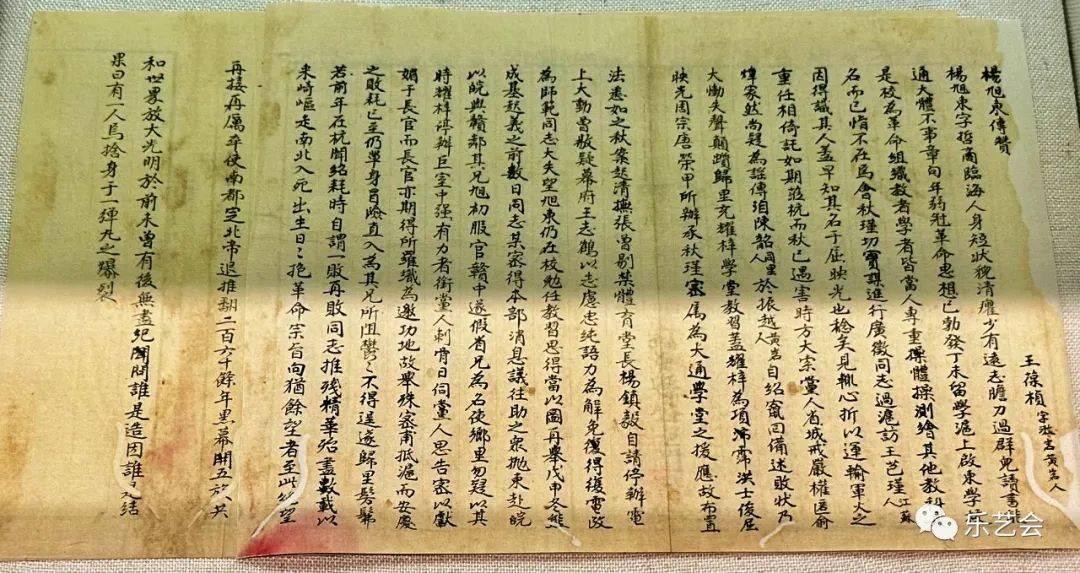 楊旭東傳贊
王葆楨 字漱岩黃岩人
楊旭東字哲商臨海人身短狀貌清癯少有遠志膽力過群兒讀書能
通大體不事章句年弱冠革命思想已勃發丁未留學滬上啟東學
是校為革命組織教者學者皆當人專重操體操測繪其他教科
名而已惜不在焉會秋瑾切實謀進行廣徵同志過滬訪王芑瑾江蘇人
因得識其人蓋早知其名于屈映光也梒矣見輒心折以運輸軍火之
重任相倚託如期蒞杭而秋已遇害時方大索黨人省城戒嚴權匿俞
煒家然尚疑為謠傳洎陳韶同里人於振越黃岩自紹竄回備述敗狀乃
大慟失聲顛躓歸里充耀梓學堂教習蓋耀梓為項霈帝洪士俊屈
映光周宗唐榮甲所辦承秋瑾密属為大通學堂之後應故布置
法悉如之秋案起清撫張曾敭禁體育堂長楊鎮毅自請停辦電
上大動曾敭疑幕府王志鶴以志慮忠純語力為解免復得獲電政
為師範同志大失望旭東仍在校勉任教習思得當以圖再舉戊申冬熊
成基起義之前數日同志某密得本部消息議往助之眾拋東赴皖
以皖與贛鄰其兄旭初服官贛中遂假省兄為名使鄉里勿疑以其
時耀梓停辦巨室中强有力者銜黨人刺骨日伺黨人思告密以獻
媚于長官而長官亦期得所羅織為邀功地故舉殊密甫抵滬而安慶
之敗耗已至仍單身冒險直入為其兄所阻鬱鬱不得逞遂歸里髣髴
若前年在杭聞紹耗時自謂一敗再敗同志推殘精華殆盡數載以
來崎嶇走南北入死出生日日抱革命宗旨向猶餘望者至此絕望
再接再厲卒使南都定北帝退推翻二百六十餘年黑幕開五族共
和世界放大光明於前未曾有後無盡紀闢闢誰是造因誰是結
果曰有一人焉捨身于一彈丸之爆裂
乐艺会